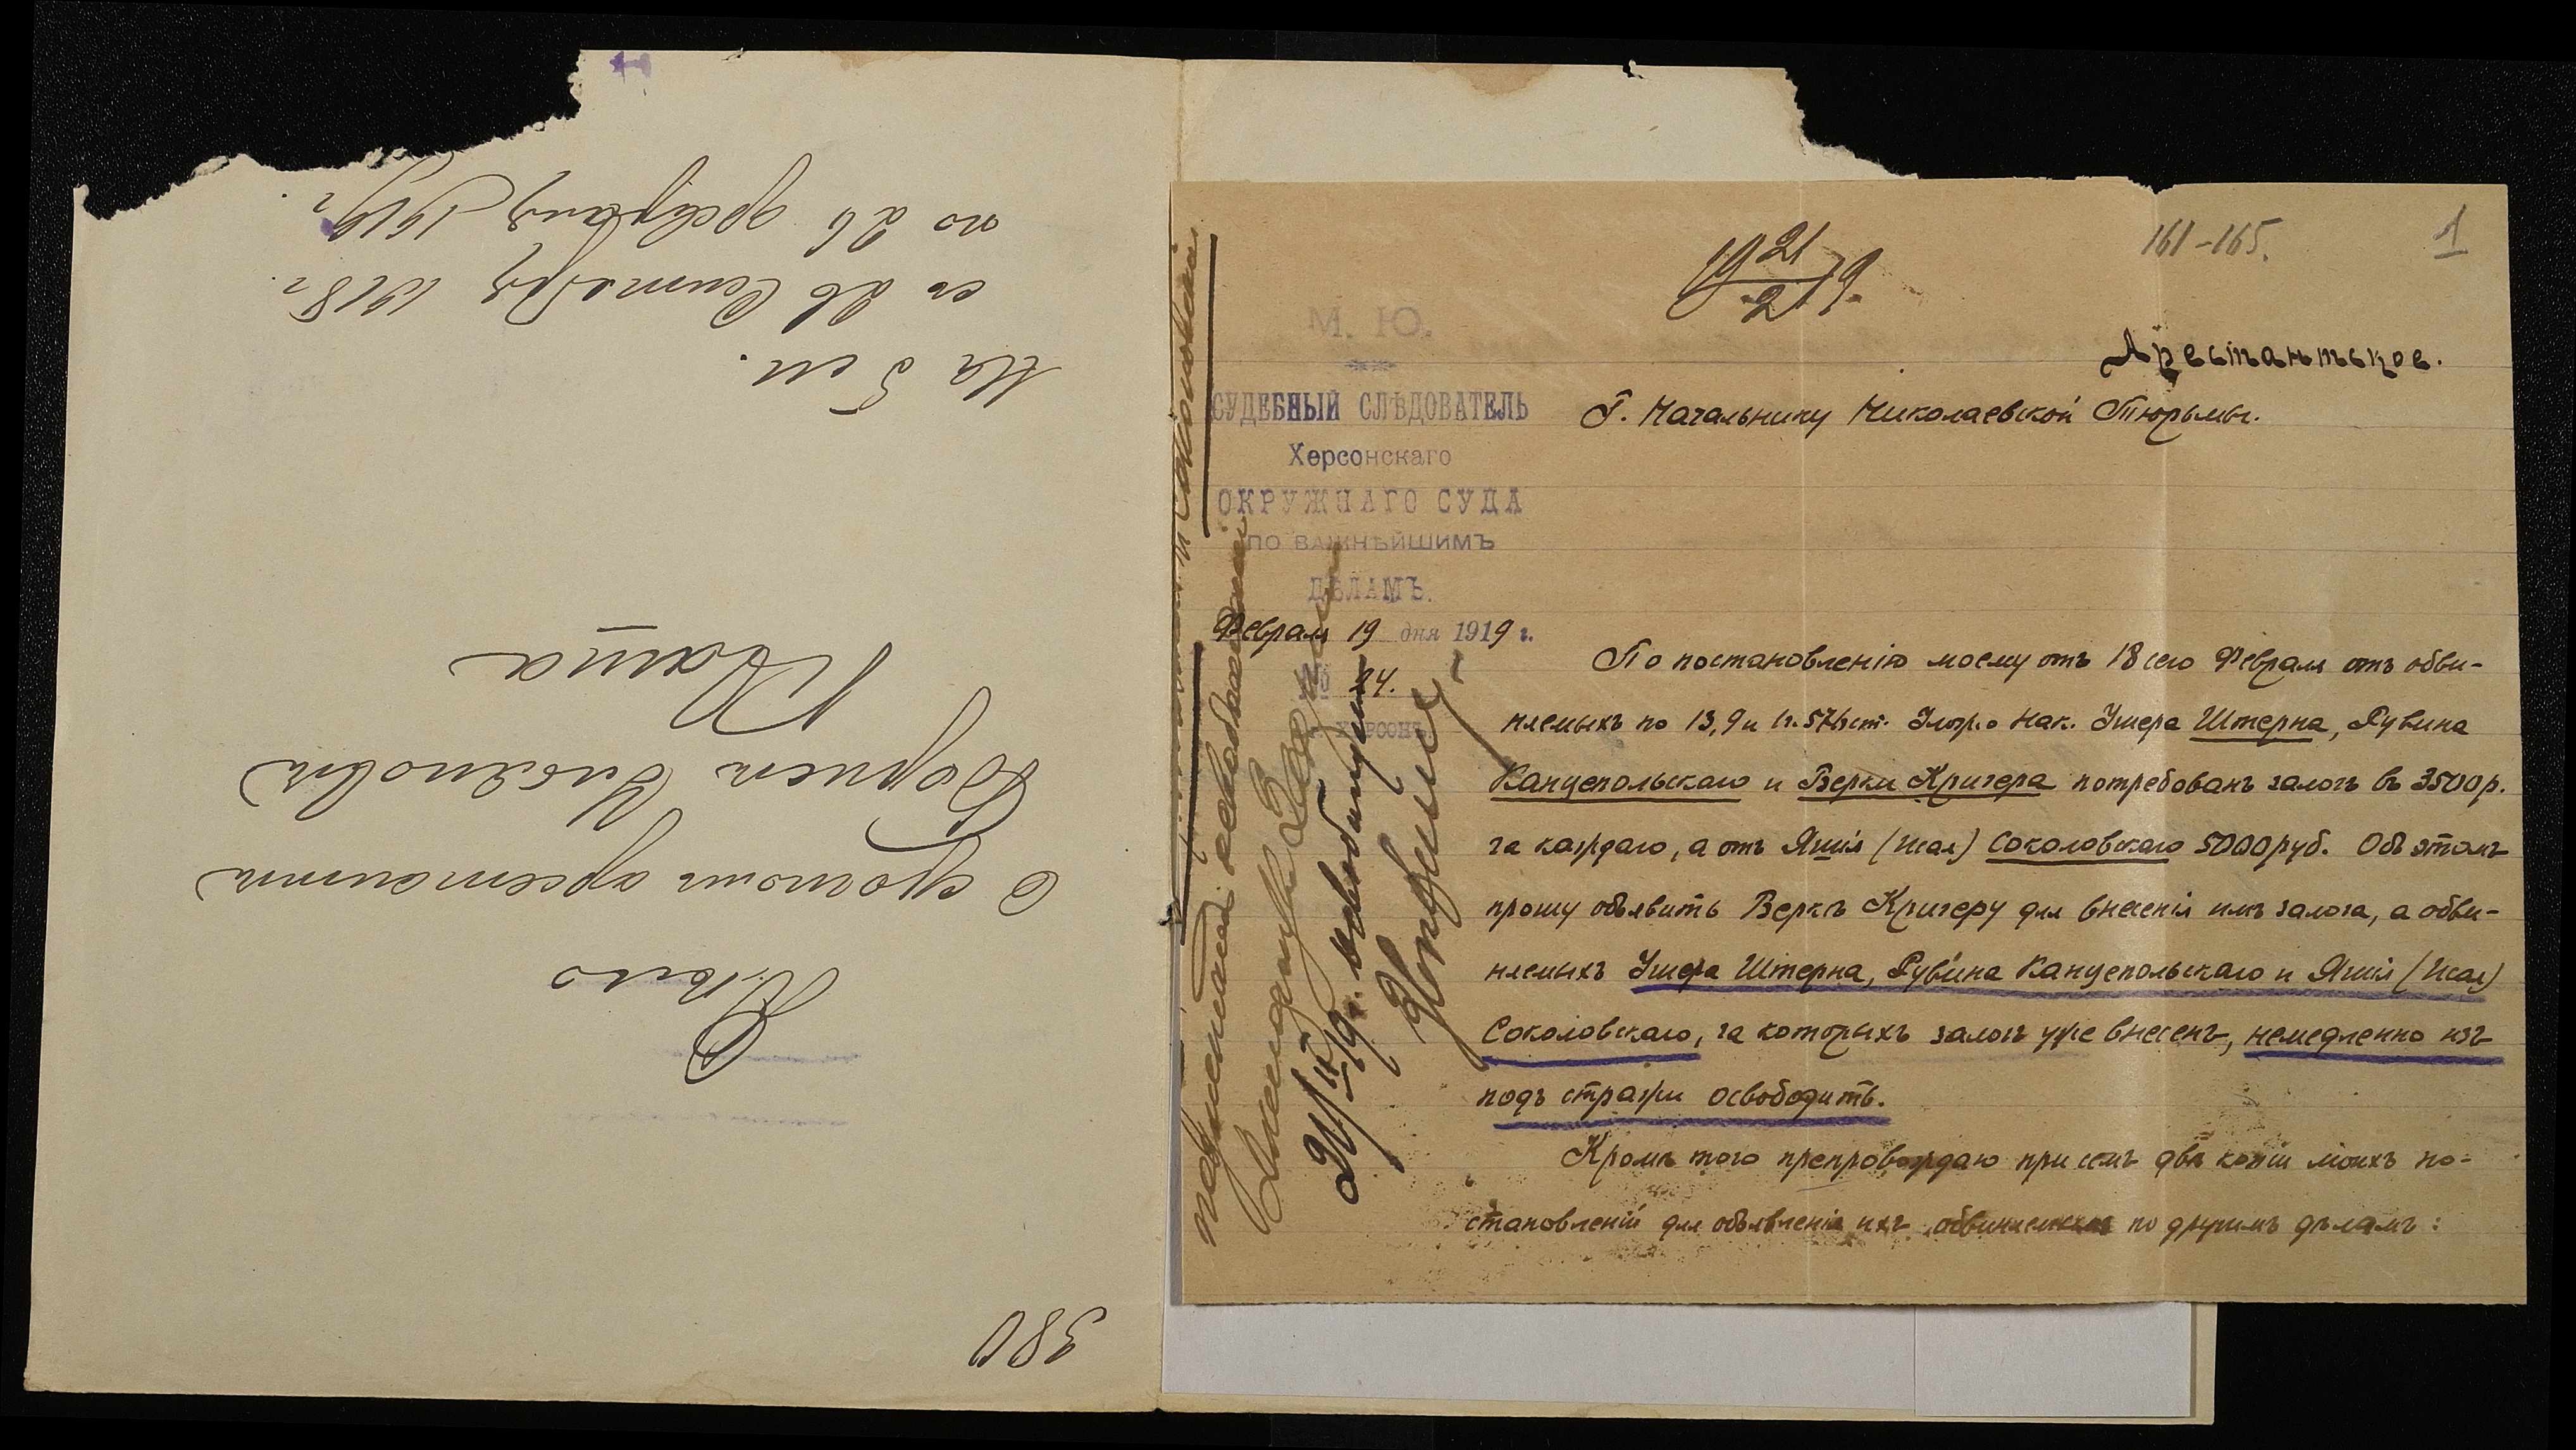 380
Дѣло
О срочномъ арестантѣ
Борисѣ
На 5 м.
съ 26 Сентября 1918 г.
по 26 февраля 1919 г.
161-165.
1
19 21/2 19.
Арестантское.
М. Ю.
СУДЕБНЫЙ СЛѢДОВАТЕЛЬ
Херсонскаго
ОКРУЖНАГО СУДА
ПО ВАЖНѢЙШИМЪ
ДѢЛАМЪ.
Февраля 19 дня 1919 г.
№ 24.
г. ХЕРСОНЪ
Г. Начальнику Николаевской Тюрьмы.
По постановленію моему отъ 18 сего Февраля отъ обви-
няемыхъ по 13, 9 и ст. Улож. о Нак. Ушера Штерна, Рувина
Канцепольскаго и Берки Кригера потребованъ залогъ въ 3500 р.
за каждаго, а отъ Яшія (Исая) Соколовскаго 5000 руб. Объ этомъ
прошу объявить Беркѣ Кригеру для внесенія имъ залога, а обви-
няемыхъ Ушера Штерна, Рувина Канцепольскаго и Яшія (Исая)
Соколовскаго, за которыхъ залогъ уже внесенъ, немедленно изъ
подъ стражи освободить.
Кромѣ того препровождаю при семъ двѣ копіи моихъ по-
становленій для объявленія ихъ обвиняемымъ по другимъ дѣламъ: